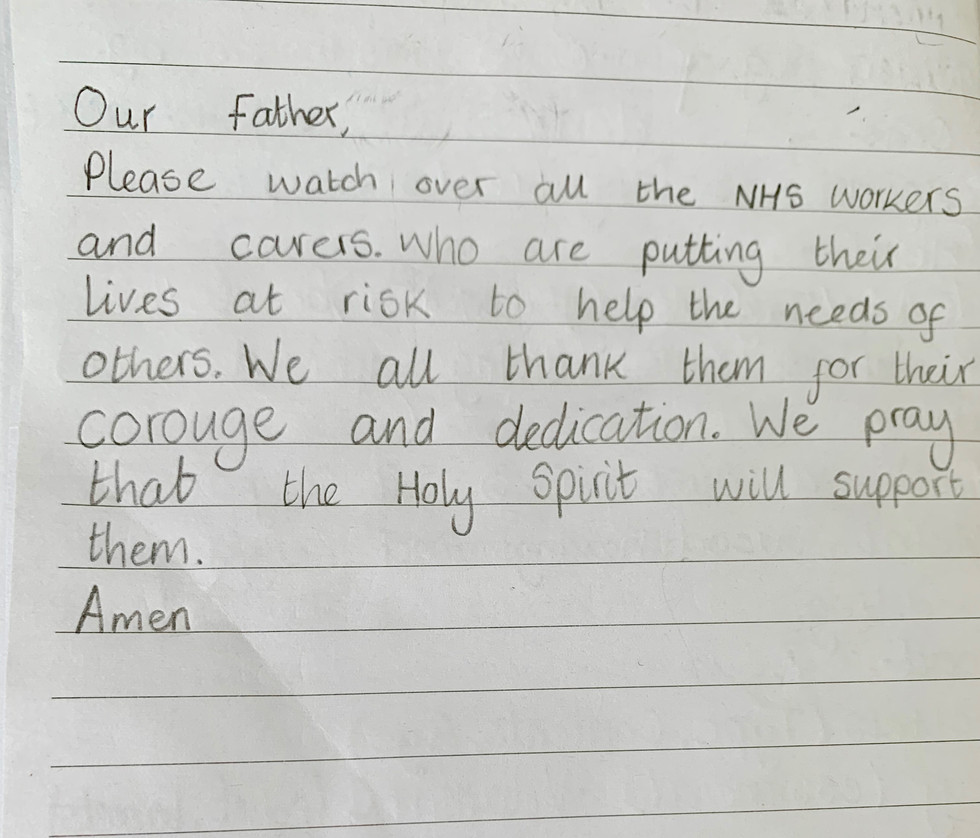 Our Father,
Please watch over all the NHS workers
and carers. Who are putting their
lives at risk to help the needs of
others. We all thank them for their
corouge and dedication. We pray
that the Holy Spirit will support
them.
Amen